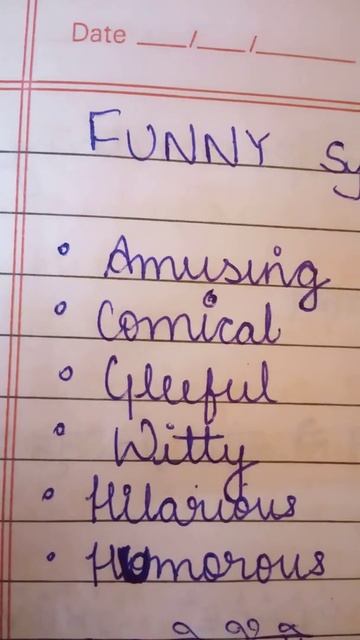 Date __/__/____
FUNNY Sy
Amusing
Comical
Gleeful
Witty
Hilarious
Humorous